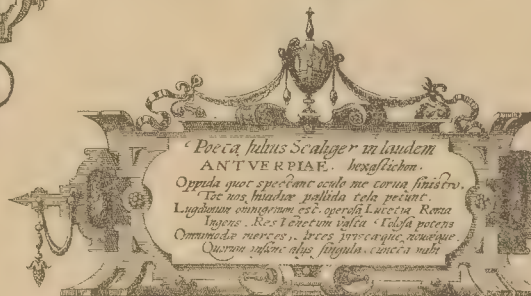 Poeta Julius Scaliger in laudem
ANTVERPIAE. hexastichon.
Oppida quot spectant oculo me torua sinistro,
Tot nos Inuidiae pallida tela petunt.
Lugdunum omnigenum est, operosa Lucetia, Roma
Ingens, Res Venetum vasta, Tolosa potens
Omnimodae merces, Artes priscaeque nouaeque,
Quorum insunt alijs singula, cuncta mihi